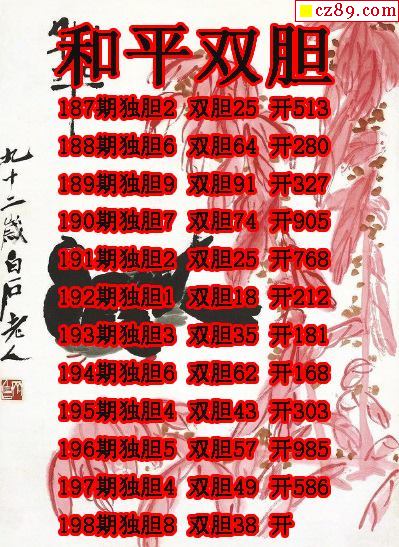 cz89.com
和平双胆
187期独胆2 双胆25 开513
188期独胆6 双胆64 开280
189期独胆9 双胆91 开327
190期独胆7 双胆74 开905
191期独胆2 双胆25 开768
192期独胆1 双胆18 开212
193期独胆3 双胆35 开181
194期独胆6 双胆62 开168
195期独胆4 双胆43 开303
196期独胆5 双胆57 开985
197期独胆4 双胆49 开586
198期独胆8 双胆38 开
九十二岁白石老人